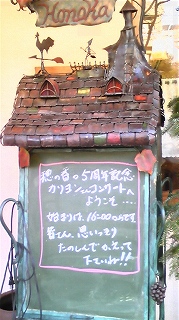 Honoka
穂の香の5周年記念
カリヨンコンサートへ
ようこそ....
始まりは、16:00からです
皆さん、思いっきり
たのしんでかえって
下さいね!!